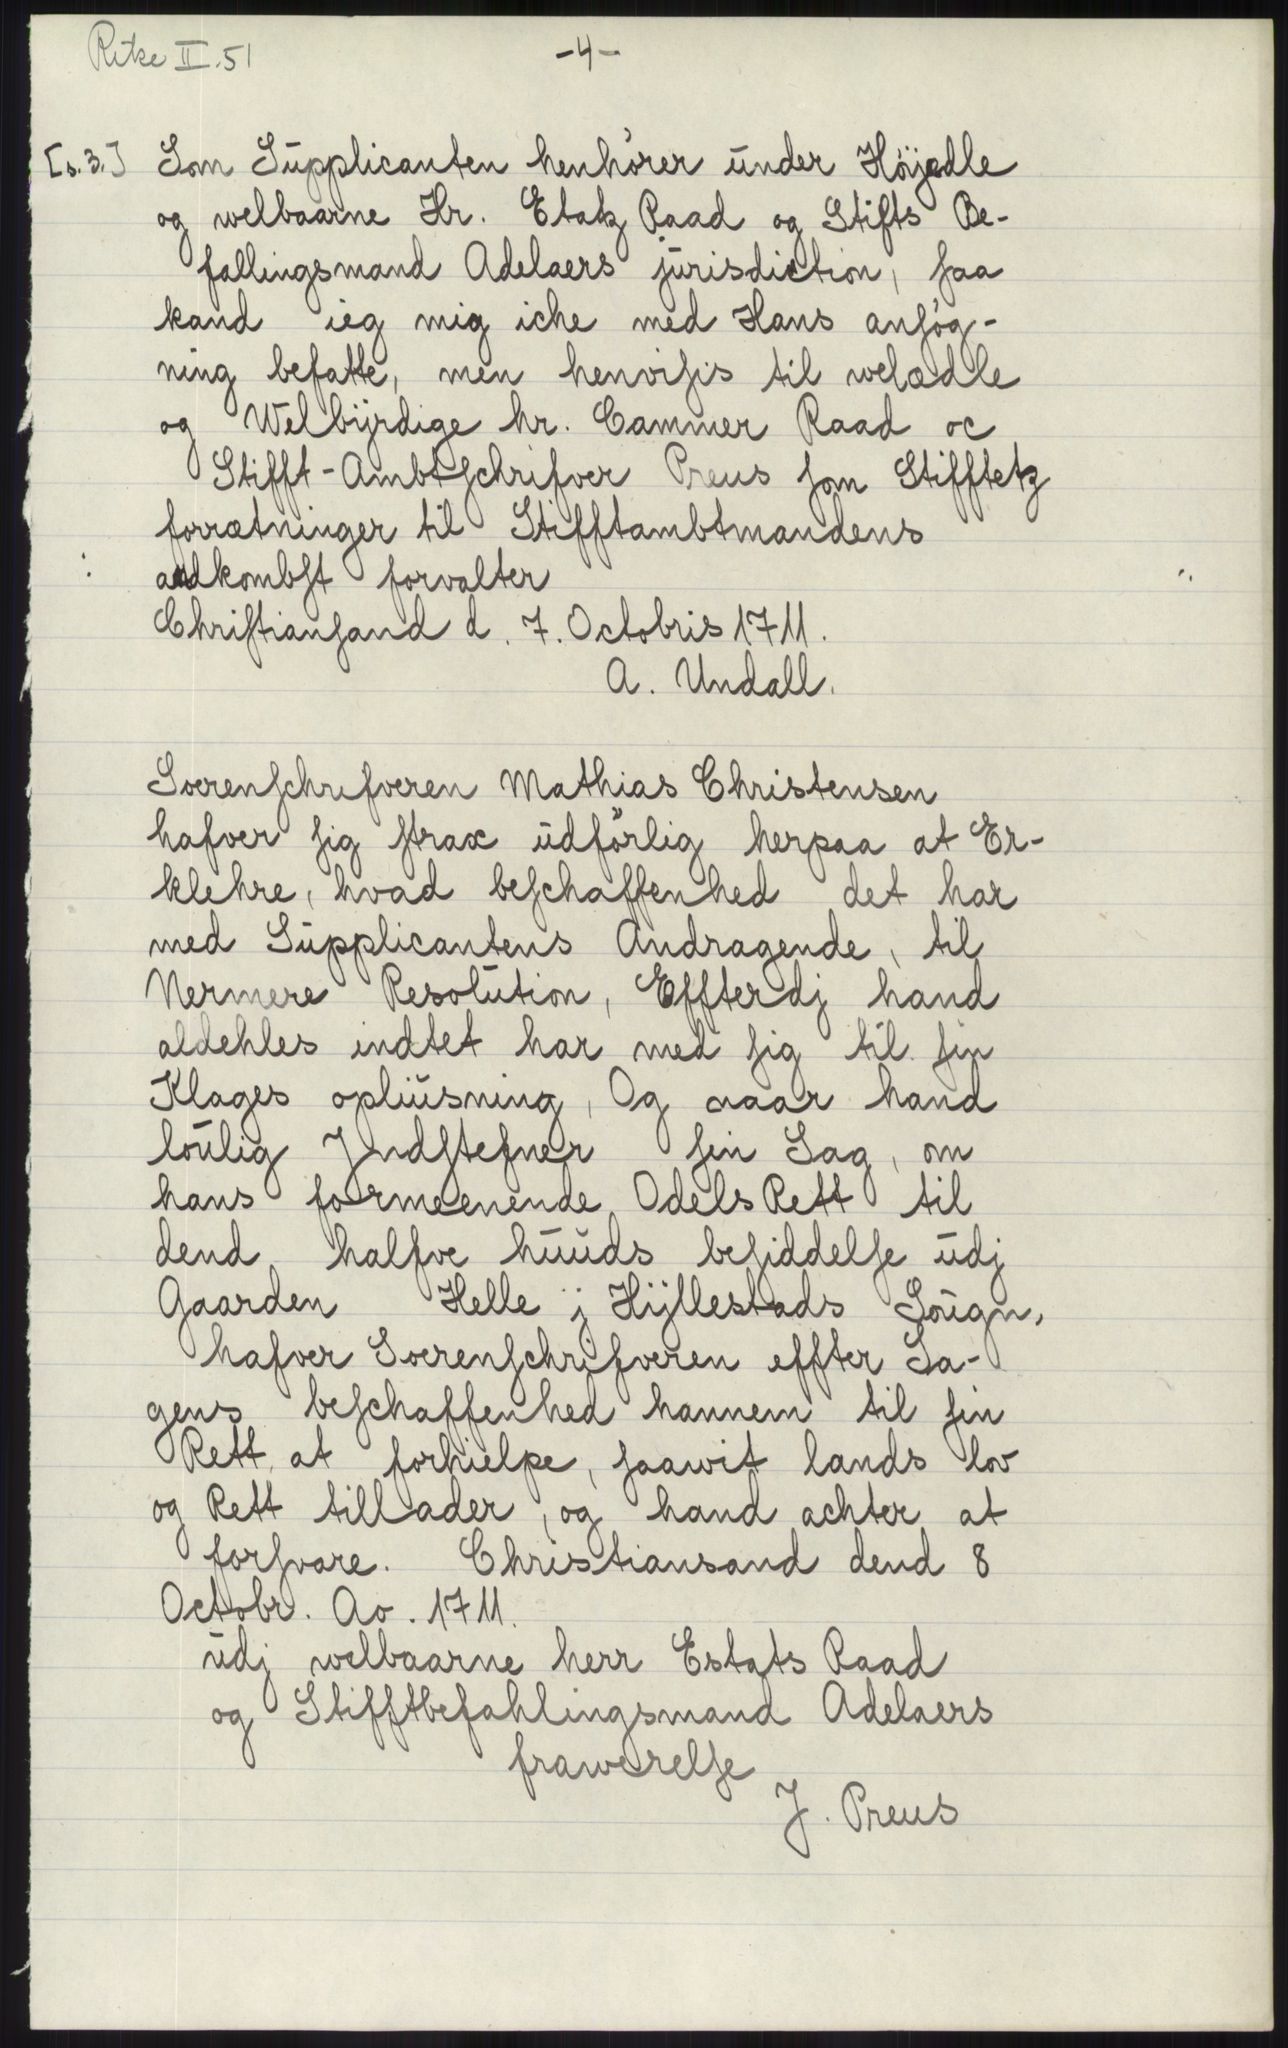 Rike II. 51
-4-
[s. 3.] Som Supplicanten henhører under Høÿædle
og welbaarne Hr. Etatz Raad og Stifts Be-
fallingsmand Adelaers jurisdiction, saa
kand ieg mig iche med Hans ansøg-
ning befatte, men henvisis til welædle
og Welbÿrdige hr. Cammer Raad oc
Stifft-Ambtschrifver Preus som Stifftetz
forrætninger til Stifftambtmandens
ankombst forvalter
Christiansand d. 7. Octobris 1711.
A. Undall.
Sorenschrifveren Mathias Christensen
hafver sig strax udförlig herpaa at Er-
klehre, hvad beschaffenhed det har
med Supplicantens Andragende, til
Nermere Resolution, Effterdj hand
aldehles indtet har med sig til sin
Klages opliusning, Og naar hand
loulig Jndstefner sin Sag, om
hans formeenende Odels Rett til
dend halfve huuds besiddelse udj
Gaarden Helle j Hÿllestads Sougn,
hafver Sorenschrifveren effter Sa-
gens beschaffenhed hannem til sin
Rett at forhielpe, saawit lands lov
og Rett tillader, og hand achter at
forsvare. Christiansand dend 8
Octobr. Ao. 1711.
udj welbaarne herr Estats Raad
og Stifftbefahlingsmand Adelaers
frawerelse
J. Preus